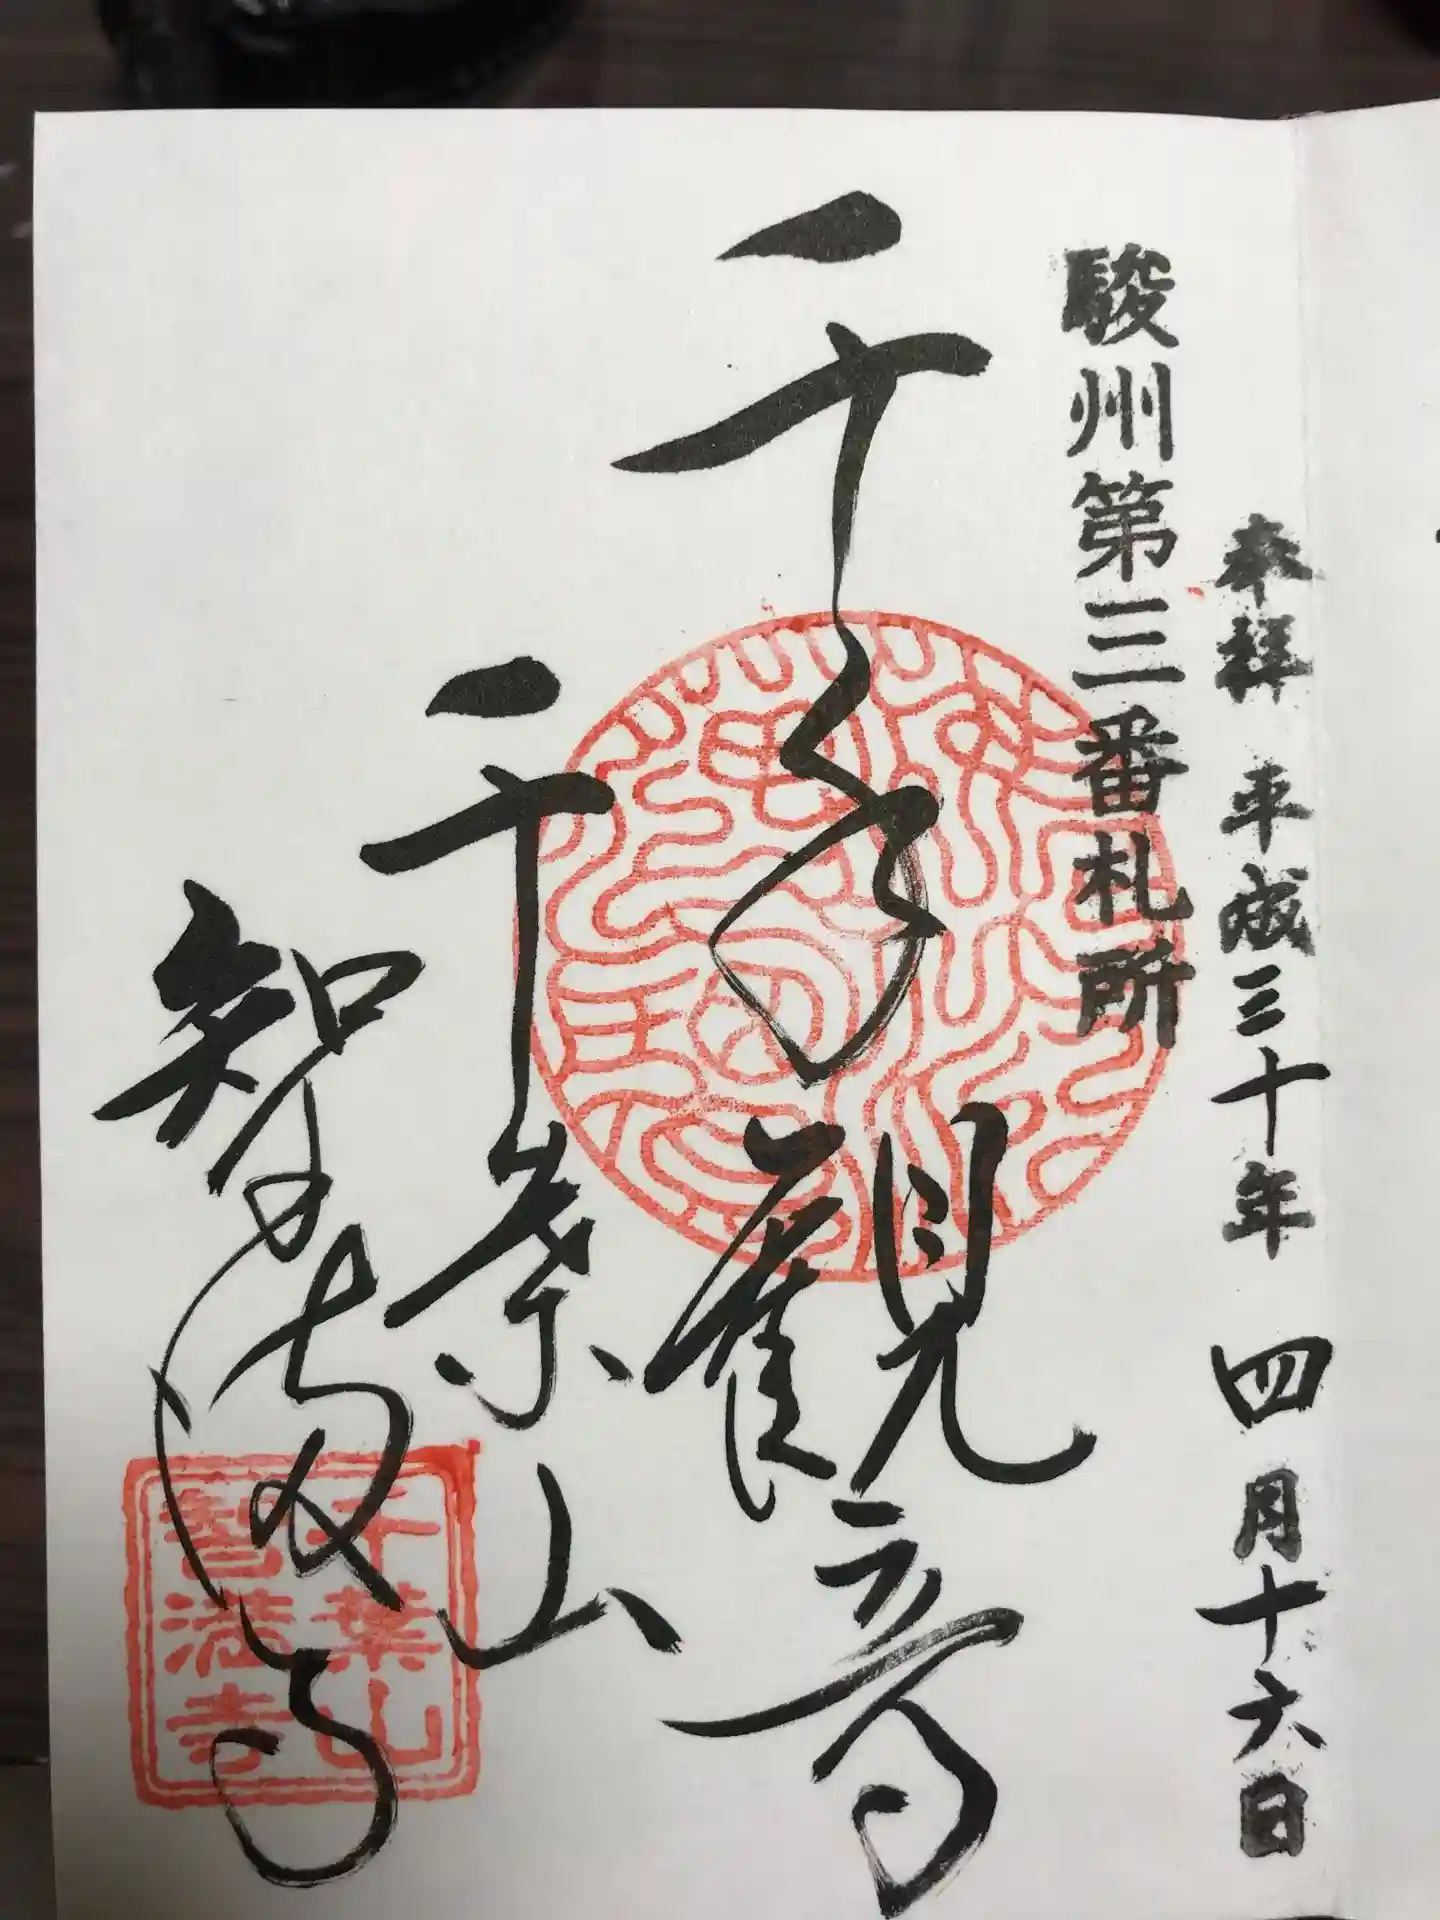 奉拝 平成三十年 四月十六日
駿州第三番札所
千手観音
千葉山
智満寺
千葉山
智満寺